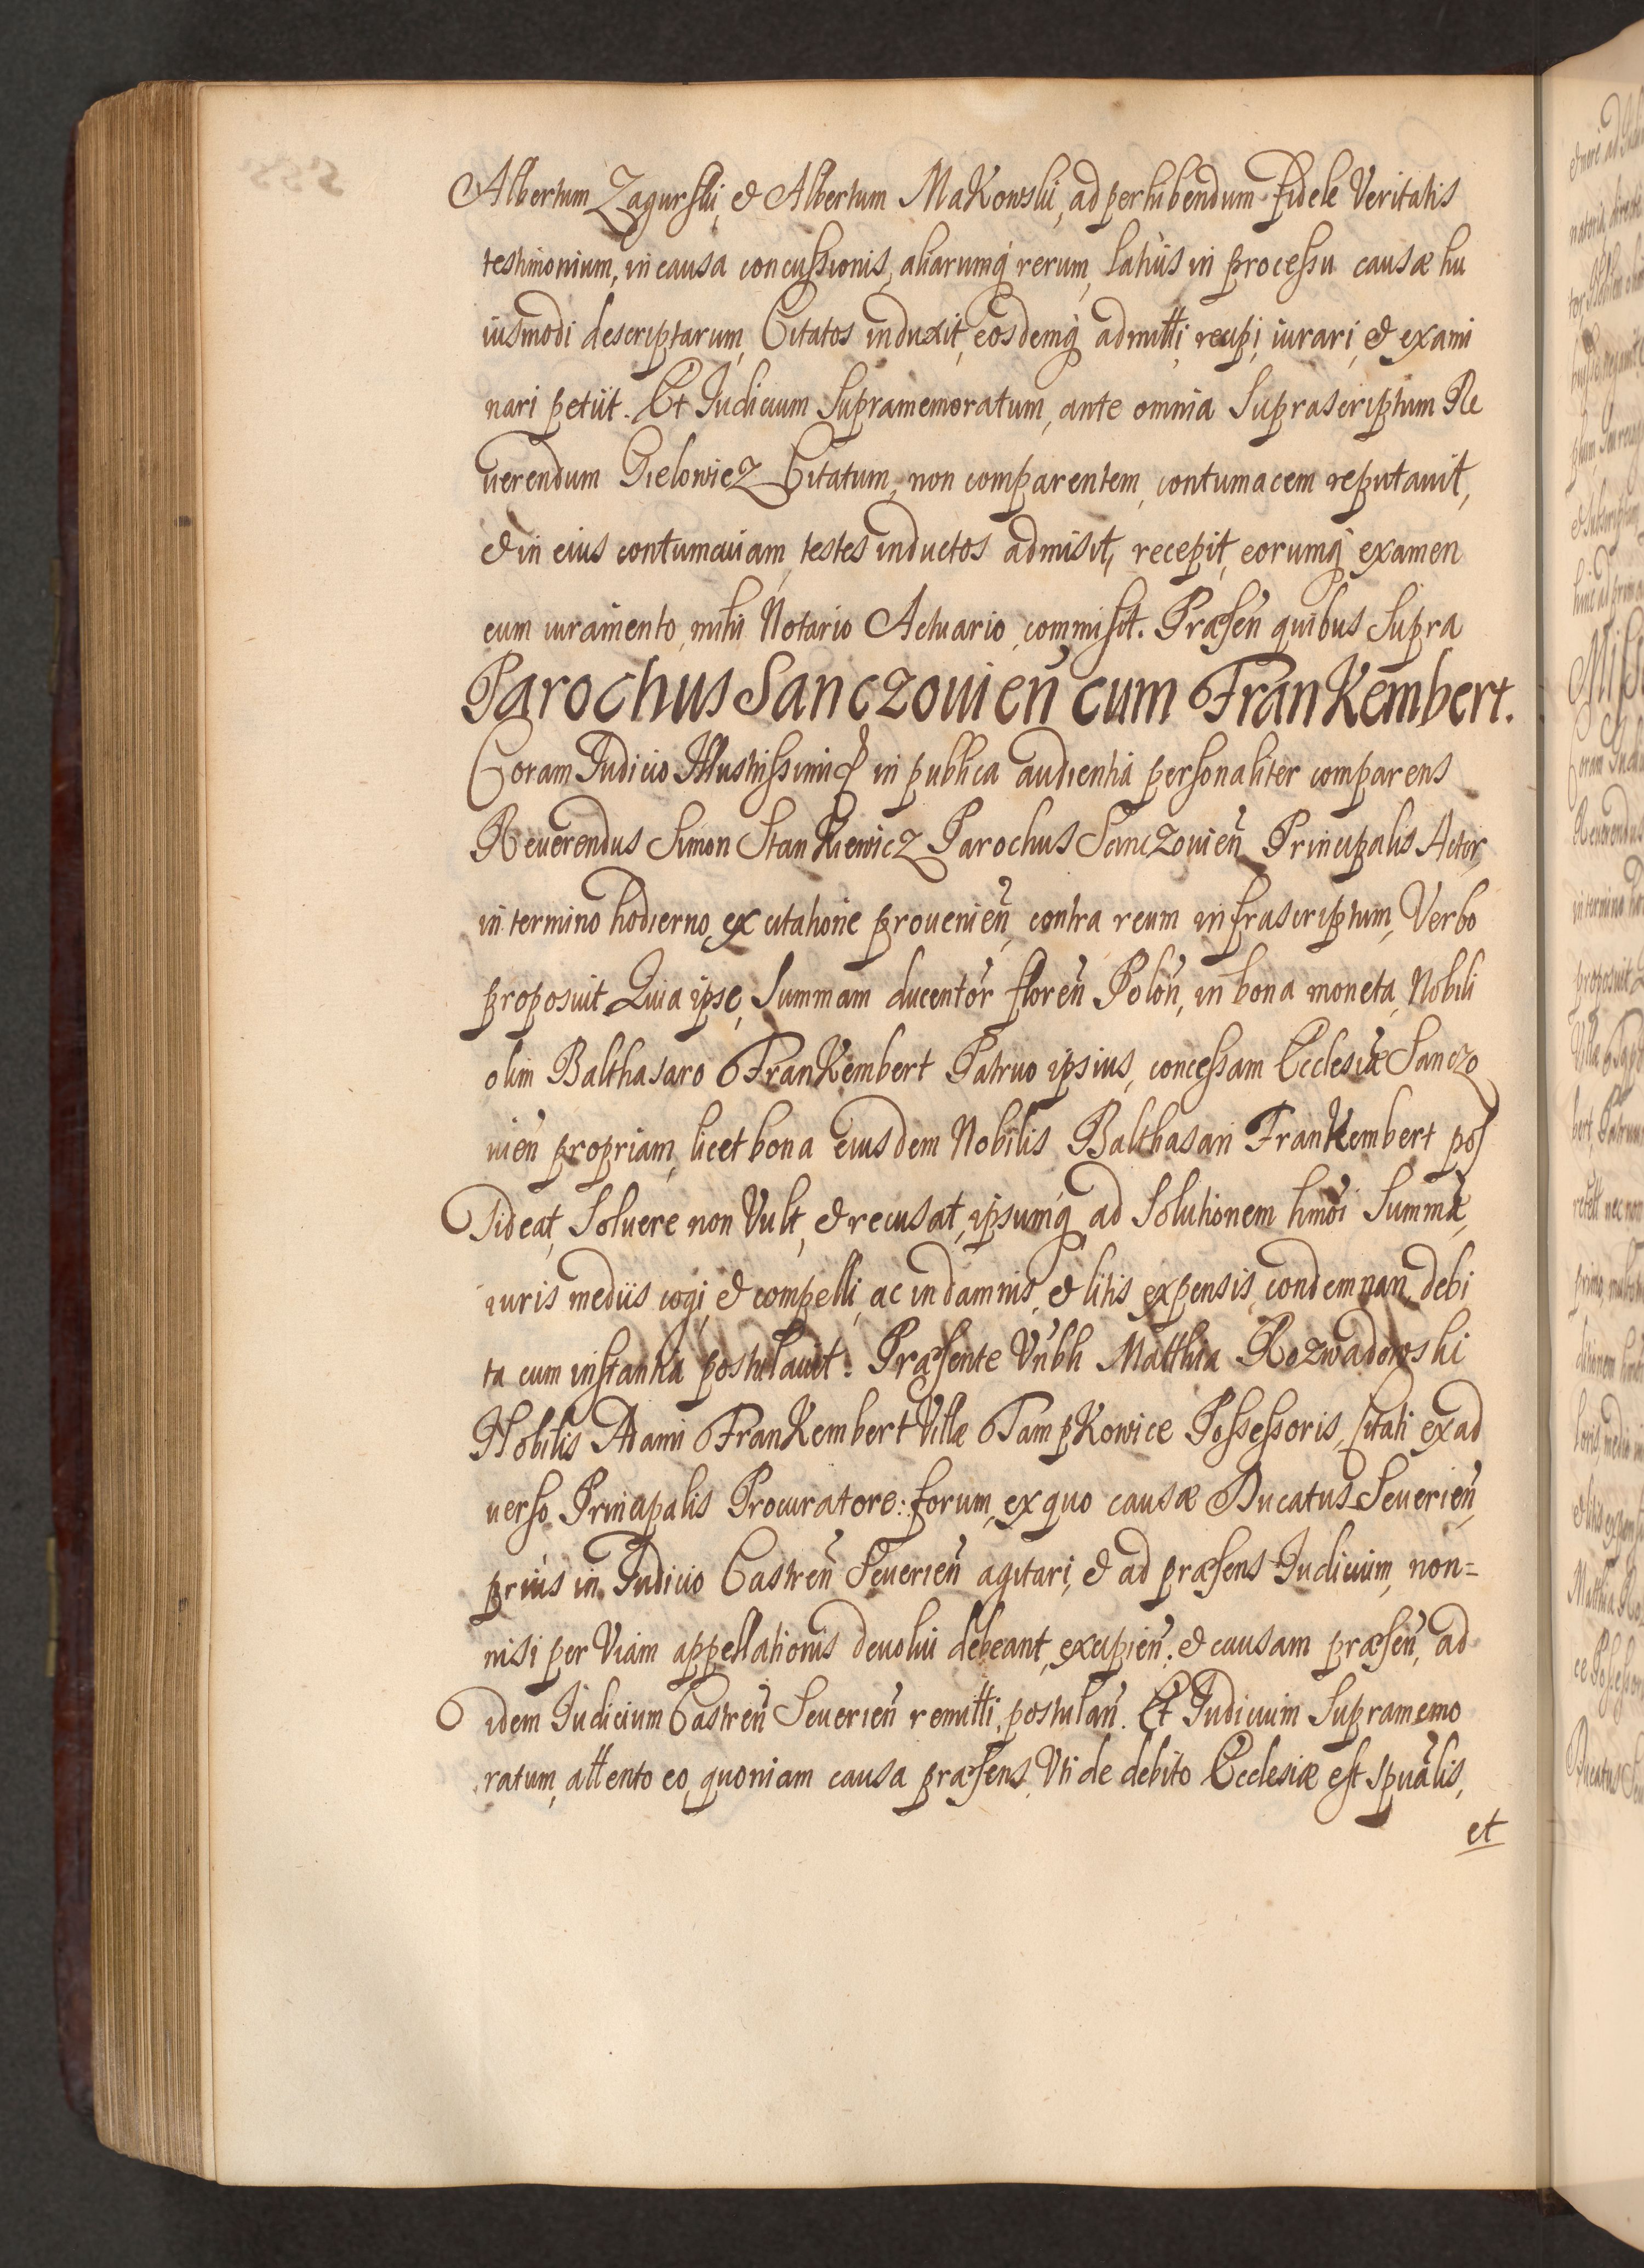 Albertum Zagurski, & Albertum Makowski, ad perhibendum fidele Veritatis
testimonium, in causa concussionis, aliarumq́ rerum, latiùs in processu causæ hu
iusmodi descriptarum, Citatos induxit, eosdemq́ admitti, recipi, iurari, & exami
nari petiit. Et Iudicium Supramemoratum, ante omnia Suprascriptum Re
uerendum Gielowicz Citatum, non comparentem, contumacem reputauit,
& in eius contumaciam, testes inductos admisit, recepit, eorumq́ examen
cum iuramento, mihi Notario Actuario, commisit. Præsen̄ quibus Supra
Parochus Sanczouien̄ cum Frankembert.
Coram Iudicio Illustrissimi &c in publica audientia personaliter comparens
Reuerendus Simon Stankiewicz Parochus Sanczouien̄ Principalis Actor,
in termino hodierno, ex citatione prouenien̄, contra reum infrascriptum, Verbo
proposuit. Quia ipse, Summam ducentor̄ floren̄ Polon̄, in bona moneta, Nobili
olim Balthasaro Frankembert Patruo ipsius, concessam Ecclesiæ Sanczo
uien̄ propriam, licet bona eiusdem Nobilis Balthasari Frankembert pos
sideat, Soluere non Vult, & recusat, ipsumq́ ad Solutionem hmōi Summæ,
iuris mediis cogi, & compelli, ac in damnis, & litis expensis, condemnari, debi
ta cum instantia postulauit. Præsente Vnbli Matthia Rozwadowski
Nobilis Adami Frankembert Villæ Tampkowice Possessoris, Citati ex ad
uerso Principalis Procuratore: forum, ex quo causæ Ducatus Seuerien̄,
priùs in Iudicio Castren̄ Seuerien̄ agitari, & ad præsens Iudicium, non=
nisi per Viam appellationis deuolui debeant, excipien̄. & causam præsen̄, ad
idem Iudicium Castren̄ Seuerien̄ remitti, postulan̄. Et Iudicium Supramemo
ratum, attento eo, quoniam causa præsens, Vti de debito Ecclesiæ est spuālis,
et